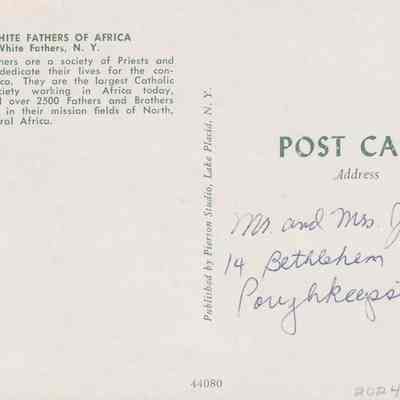 HITE FATHERS OF AFRICA
White Fathers, N. Y.
hers are a society of Priests and
dedicate their lives for the con-
ica. They are the largest Catholic
ciety working in Africa today,
d over 2500 Fathers and Brothers
in their mission fields of North,
ral Africa.
Published by Pierson Studio, Lake Placid, N. Y.
POST CA
Address
Mr. and Mrs. J
14 Bethlehem
Poughkeeps
44080
2024